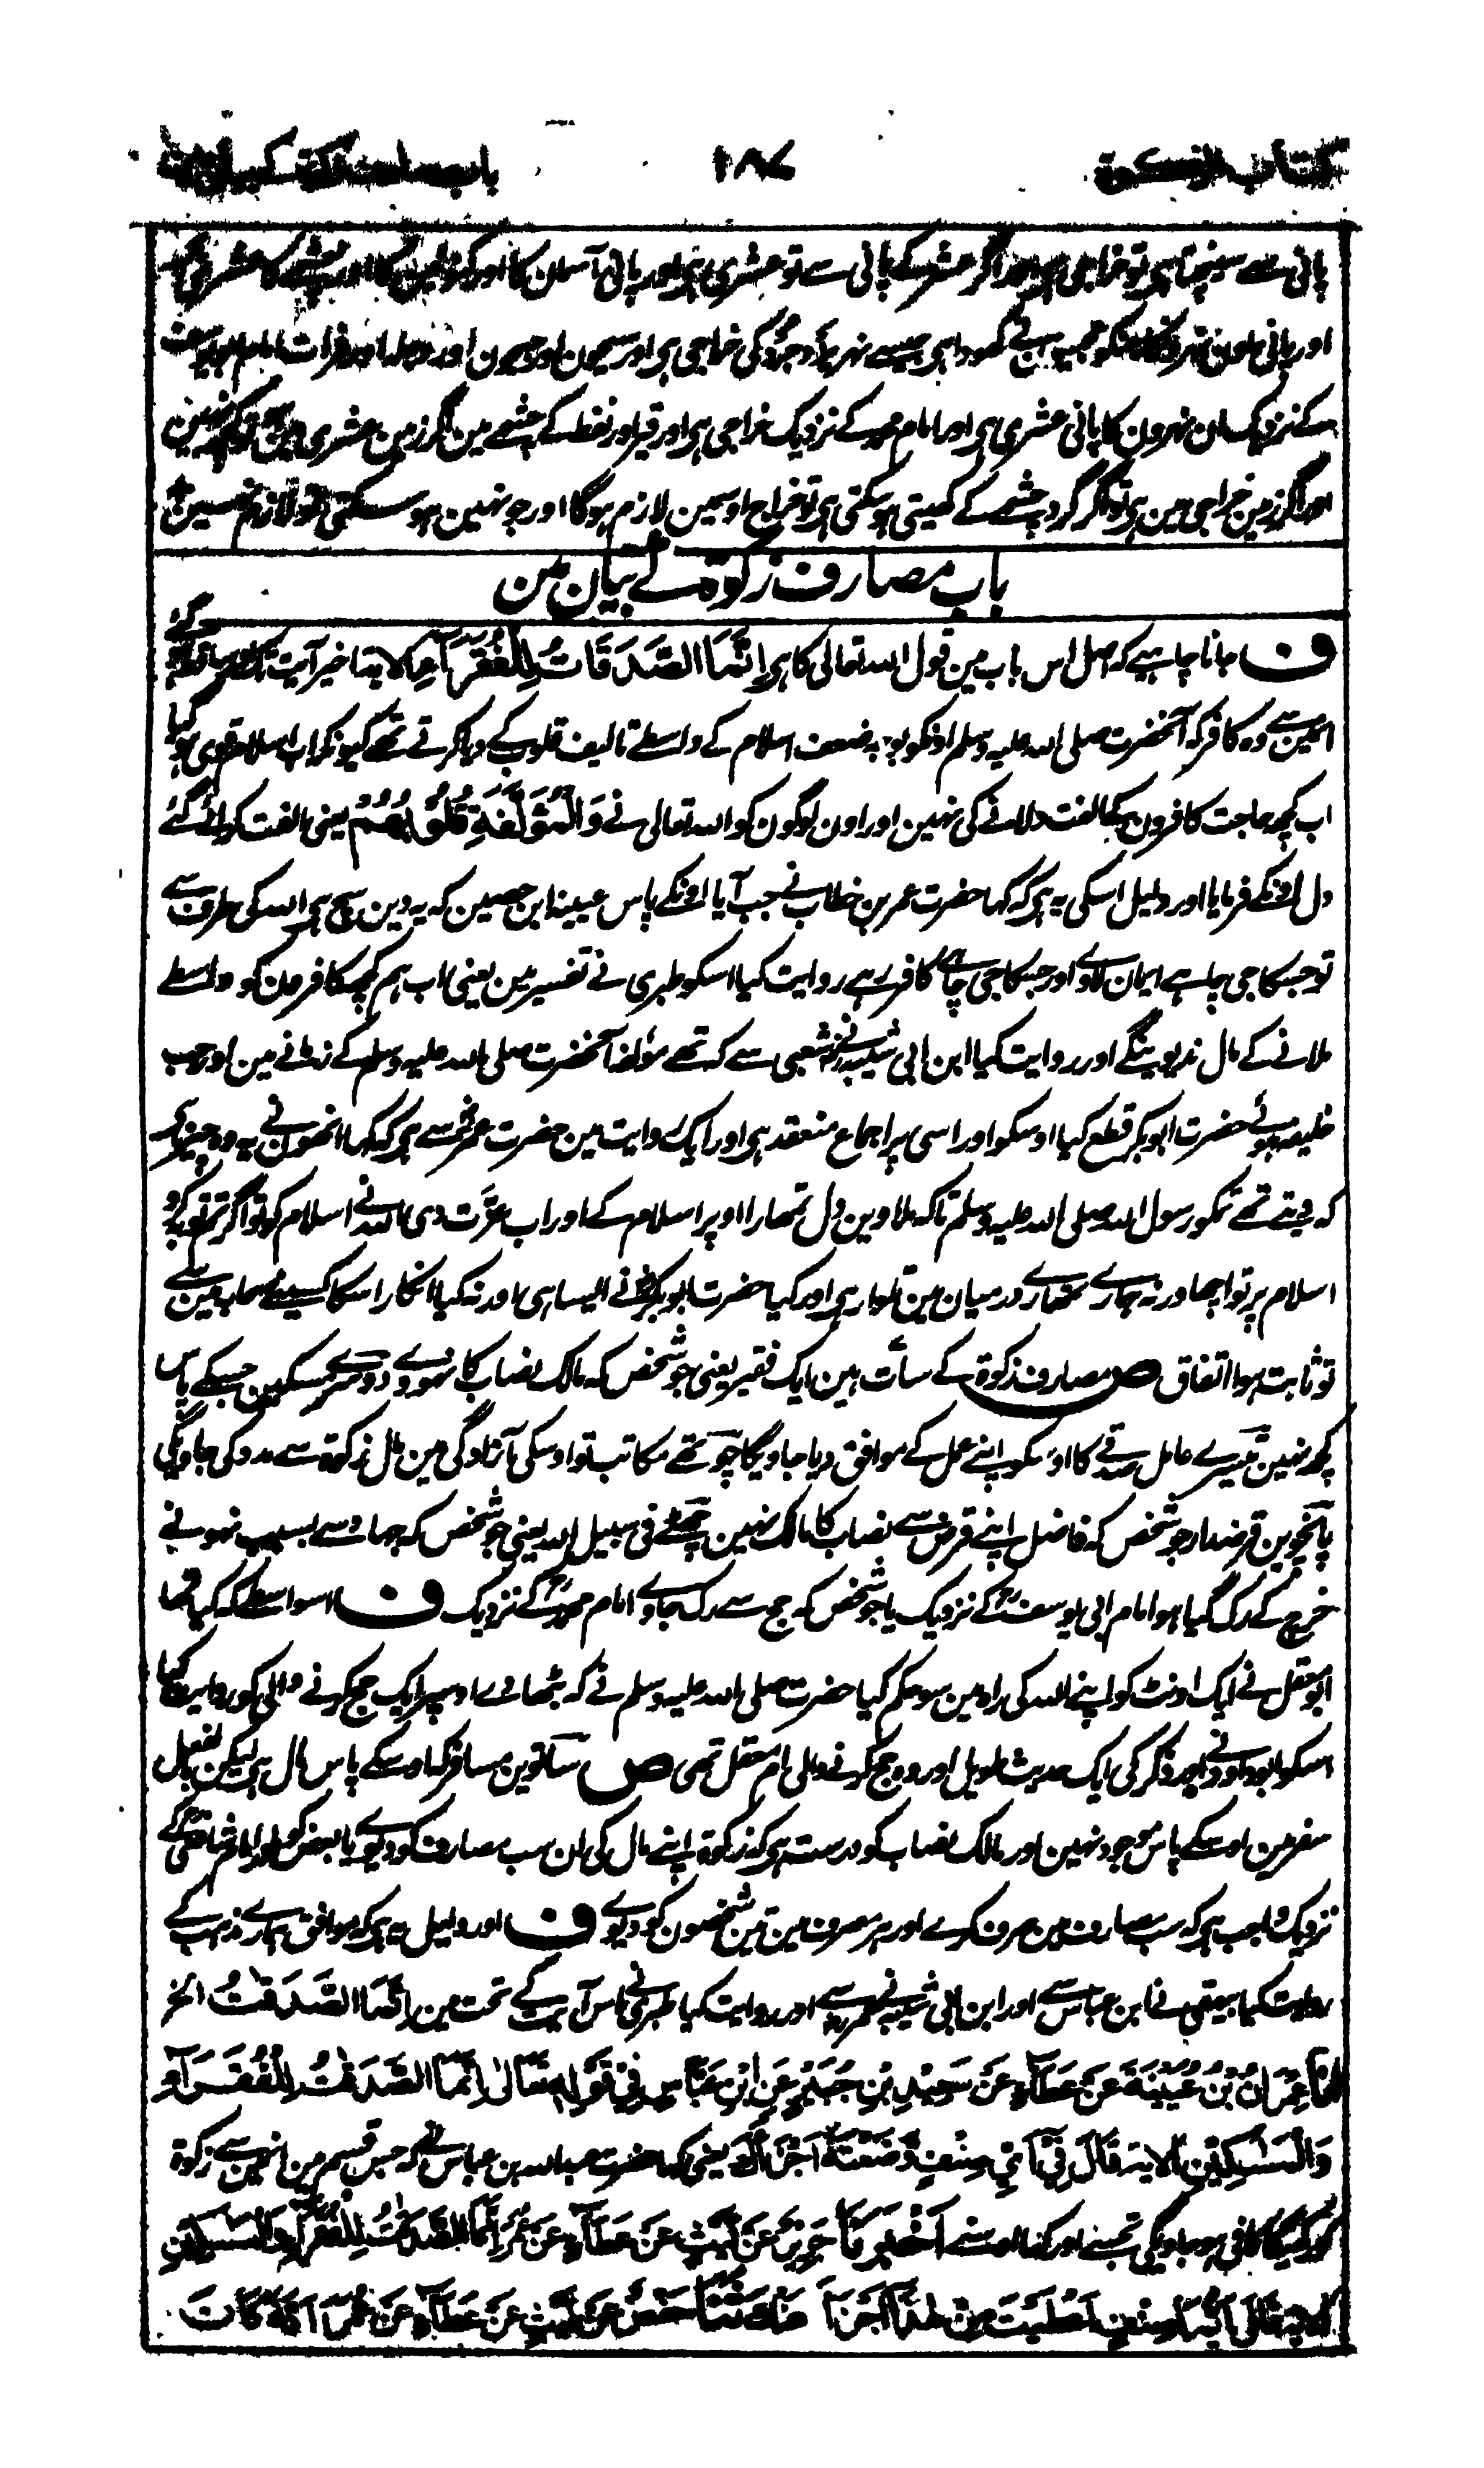 کتاب الزکوة ۱۸۷ باب
پانی سے سینچتا ہی تو خراجی ہی اور اگر عشر کے پانی سے تو عشری ہی اور پانی آسمان کا اور کنوئین کا اور چشمے کا عشری ہی
اور پانی اون نہرون کا جنکو عجمیون نے کھودا ہی جیسے نہر یزدجرد کی خراجی ہی اور سیحون اور جیحون اور دجلہ اور فرات امام ابو یوسف
کے نزدیک ان نہرون کا پانی عشری ہی اور امام محمد کے نزدیک خراجی ہی اور قیر اور نفط کے چشمے مین اگر زمین عشری مین ہی تو کچھ نہین
اور اگر زمین خراجی مین ہی تو اگر گرد چشمے کے کھیتی ہو سکتی ہی تو خراج اوسمین لازم ہوگا اور جو نہین ہو سکتی تو لازم نہین
باب مصارف زکوة کے بیان مین
ف جانا چاہیے کہ اصل اس باب مین قول اللہ تعالی کا ہی اِنَّمَا الصَّدَقَاتُ لِلْفُقَرَآءِ الایة اخیر آیت تک اور ساقط ہو گئے
اسمین سے وہ کافر کہ آنحضرت صلی اللہ علیہ وسلم اونکو بوجہ ضعف اسلام کے واسطے تالیف قلوب کے دیا کرتے تھے کیونکہ اب اسلام قوی ہو گیا
اب کچھ حاجت کافرون کی الفت دلانے کی نہین اور اون لوگون کو اللہ تعالی نے وَالْمُؤَلَّفَةِ قُلُوْبُهُمْ یعنی الفت کرائے گئے
دل اونکے فرمایا اور دلیل اسکی یہ ہی کہ کہا حضرت عمر بن خطاب نے جب آیا اونکے پاس عیینہ ابن حصین کہ یہ دین سچ ہی اللہ کی طرف سے
تو جسکا جی چاہے ایمان لاوے اور جسکا جی چاہے کافر رہے روایت کیا اسکو طبری نے تفسیر مین یعنی اب ہم کچھ کافرون کو واسطے
ملانے کے مال ندیوینگے اور روایت کیا ابن ابی شیبہ نے شعبی سے کہ تھے مؤلفہ آنحضرت صلی اللہ علیہ وسلم کے زمانے مین اور جب
خلیفہ ہوئے حضرت ابوبکر قطع کیا اوسکو اور اسی پر اجماع منعقد ہی اور ایک روایت مین حضرت عمر سے ہی کہ کہا انھون نے یہ وہ چیز ہی
کہ دیتے تھے تمکو رسول اللہ صلی اللہ علیہ وسلم تاکہ ملاوین دل تمھارا اوپر اسلام کے اور اب عزت دی اللہ نے اسلام کو تو اگر تم توبہ کرو
اسلام پر تو اچھا ورنہ ہمارے تمھارے درمیان مین تلوار ہی اور کیا حضرت ابوبکر نے ایسا ہی اور نہ کیا انکار اسکا کسینے صحابہ مین سے
تو ثابت ہوا اتفاق ص مصارف زکوة کے سات ہین ایک فقیر یعنی جو شخص کہ مالک نصاب کا نہووے دوسرے مسکین جسکے پاس
کچھ نہین تیسرے عامل صدقے کا اوسکو اپنے عمل کے موافق دیا جاویگا چوتھے مکاتب تو اوسکی آزادگی مین مال زکوة سے مدد کی جاویگی
پانچوین قرضدار جو شخص کہ فاضل اپنے قرض سے نصاب کا مالک نہین چھٹے فی سبیل اللہ یعنی جو شخص کہ جہاد سے بسبب نہونے
خرچ کے رک گیا ہو امام ابی یوسف کے نزدیک یا جو شخص کہ حج سے رک جاوے امام محمد کے نزدیک ف اسواسطے کہ کیا تھا
ابو معقل نے ایک اونٹ کو اپنے اللہ کی راہ مین سو حکم کیا حضرت صلی اللہ علیہ وسلم نے کہ بٹھاوے اوسپر ایک حج کرنے والی کو روایت کیا
اسکو ابوداود نے اور ذکر کی ایک حدیث طویل اور وہ حج کرنے والی ام معقل تھی ص ساتوین مسافر کہ اوسکے پاس مال ہی لیکن بالفعل
سفر مین اوسکے پاس موجود نہین اور مالک نصاب کو درست ہی کہ زکوة اپنے مال کی ان سب مصارف کو دیوے یا بعض کو اور امام شافعی کے
نزدیک واجب ہی کہ سب مصارف مین صرف کرے اور ہر مصرف مین تین تین شخصون کو دیوے ف اور دلیل یہ ہی کہ موافق ہمارے مذہب کے
روایت کیا بیہقی نے ابن عباس سے اور ابن ابی شیبہ نے عمر سے اور روایت کیا طبری نے اس آیت کے تحت مین اِنَّمَا الصَّدَقٰتُ الخ
عِمْرَانُ بْنُ عُيَيْنَةَ عَنْ عَطَآءٍ عَنْ سَعِيْدِ بْنِ جُبَيْرٍ عَنِ ابْنِ عَبَّاسٍ فِيْ قَوْلِهٖ تَعَالٰى اِنَّمَا الصَّدَقٰتُ لِلْفُقَرَآءِ
وَالْمَسٰكِيْنِ الاٰیة قَالَ فِيْ اَيِّ صِنْفٍ وَضَعْتَهٗ اَجْزَاَكَ یعنی کہا حضرت عبداللہ بن عباس نے کہ جس قسم مین انمین سے زکوة
کافی ہو جاویگی تجھسے اور کہا اوسنے اَخْبَرَنَا جَرِيْرٌ عَنْ لَيْثٍ عَنْ عَطَآءٍ عَنْ عُمَرَ اِنَّمَا الصَّدَقٰتُ لِلْفُقَرَآءِ وَالْمَسٰكِيْنِ
الاٰیة قَالَ اَيُّمَا صِنْفٍ اَعْطَيْتَ مِنْ هٰذَا اَجْزَاَ حَدَّثَنَا حَفْصٌ عَنْ لَيْثٍ عَنْ عَطَآءٍ عَنْ عُمَرَ اَنَّهٗ كَانَ